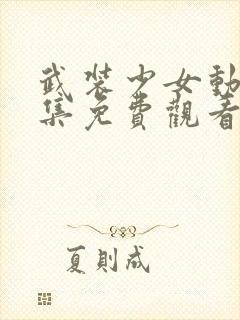 武装少女動
集免費觀看
夏則成